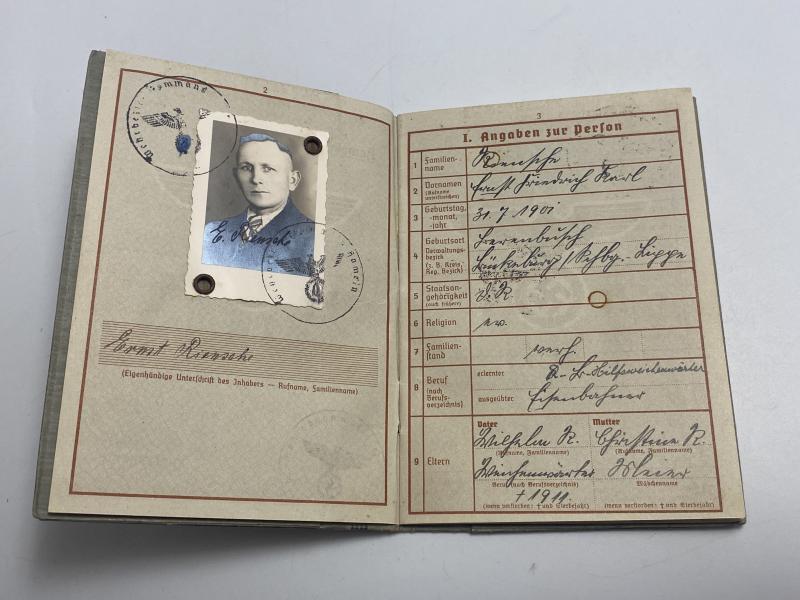 2
Wehrbezirkskommando
E. Riensche
Ernst Riensche
(Eigenhändige Unterschrift des Inhabers — Rufname, Familienname)
3
I. Angaben zur Person
1 Familien-
name
Riensche
2 Vornamen
(Rufname
unterstreichen)
Ernst Friedrich Karl
3 Geburtstag,
-monat,
-jahr
31. 7. 1901
4 Geburtsort
Verwaltungs-
bezirk
(z. B. Kreis,
Reg. Bezirk)
Berenbusch
Bückeburg / Schbg.-Lippe
5 Staatsan-
gehörigkeit
(auch frühere)
D. R.
6 Religion
ev.
7 Familien-
stand
verh.
8 Beruf
(nach
Berufs-
verzeichnis)
erlernter
Hilfsweichenwärter
ausgeübter
Eisenbahner
9 Eltern
Vater
Wilhelm R.
(Rufname, Familienname)
Weichenwärter
Beruf (nach Berufsverzeichnis)
† 1911.
(wenn verstorben: † und Sterbejahr)
Mutter
Christine R.
(Rufname, Familienname)
Meier
Mädchenname
(wenn verstorben: † und Sterbejahr)